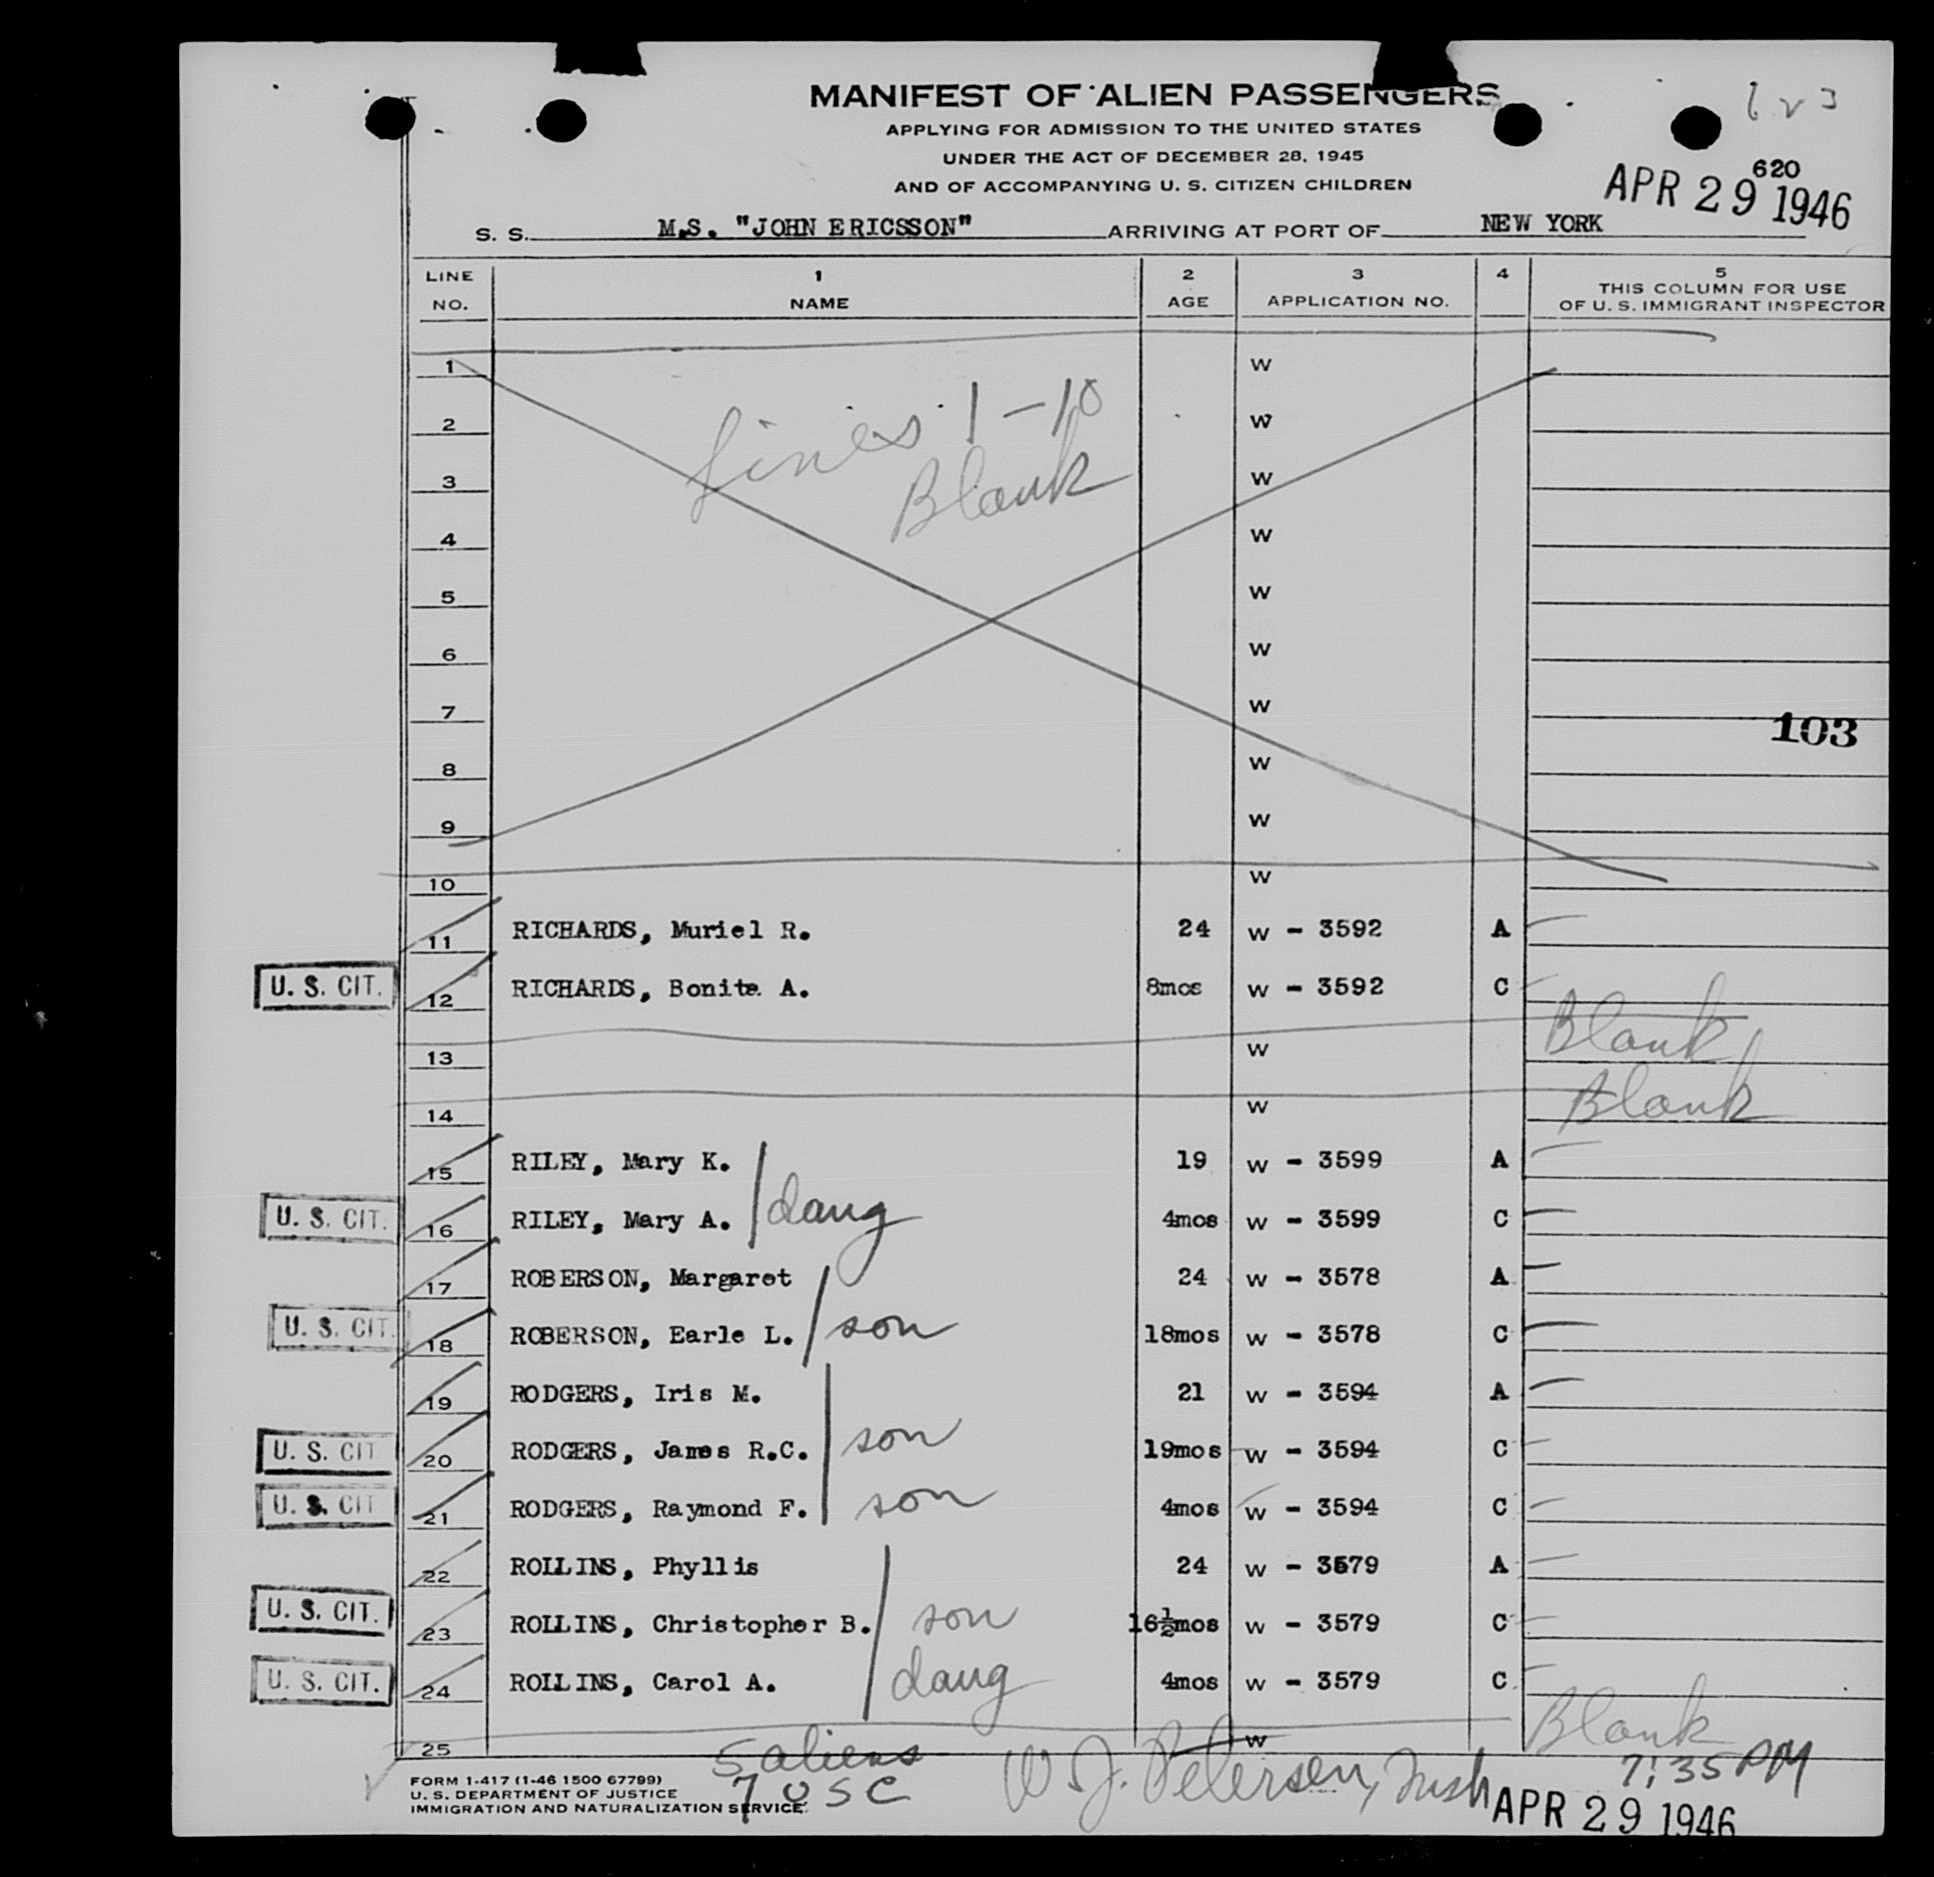 MANIFEST OF ALIEN PASSENGERS
APPLYING FOR ADMISSION TO THE UNITED STATES
UNDER THE ACT OF DECEMBER 28, 1945
AND OF ACCOMPANYING U. S. CITIZEN CHILDREN
620
APR 29 1946
S. S. M.S. "JOHN ERICSSON" ARRIVING AT PORT OF NEW YORK
LINE NO. 1 NAME 2 AGE 3 APPLICATION NO. 4 5 THIS COLUMN FOR USE OF U. S. IMMIGRANT INSPECTOR
1 W
lines 1-10
2 W
Blank
3 W
4 W
5 W
6 W
7 W
103
8 W
9 W
10 W
11 RICHARDS, Muriel R. 24 W - 3592 A
U. S. CIT. 12 RICHARDS, Bonita A. 8mos W - 3592 C
13 W Blank
14 W Blank
15 RILEY, Mary K. 19 W - 3599 A
U. S. CIT. 16 RILEY, Mary A. daug 4mos W - 3599 C
17 ROBERSON, Margaret 24 W - 3578 A
U. S. CIT. 18 ROBERSON, Earle L. son 18mos W - 3578 C
19 RODGERS, Iris M. 21 W - 3594 A
U. S. CIT 20 RODGERS, James R.C. son 19mos W - 3594 C
U. S. CIT 21 RODGERS, Raymond F. son 4mos W - 3594 C
22 ROLLINS, Phyllis 24 W - 3579 A
U. S. CIT. 23 ROLLINS, Christopher B. son 16½mos W - 3579 C
U. S. CIT. 24 ROLLINS, Carol A. daug 4mos W - 3579 C
25 W Blank
5 aliens
7 USC
W. J. Petersen,
7:35 PM
APR 29 1946
FORM I-417 (1-46 1500 67799)
U. S. DEPARTMENT OF JUSTICE
IMMIGRATION AND NATURALIZATION SERVICE